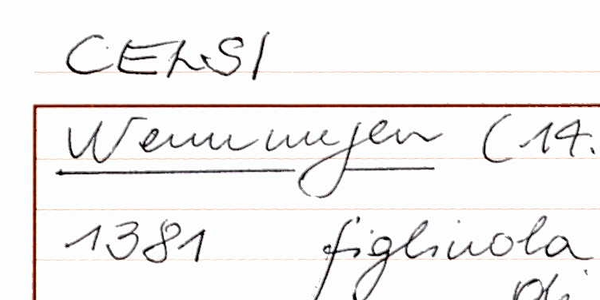 CELSI
Wenninger (14.
1381 figliuola
di